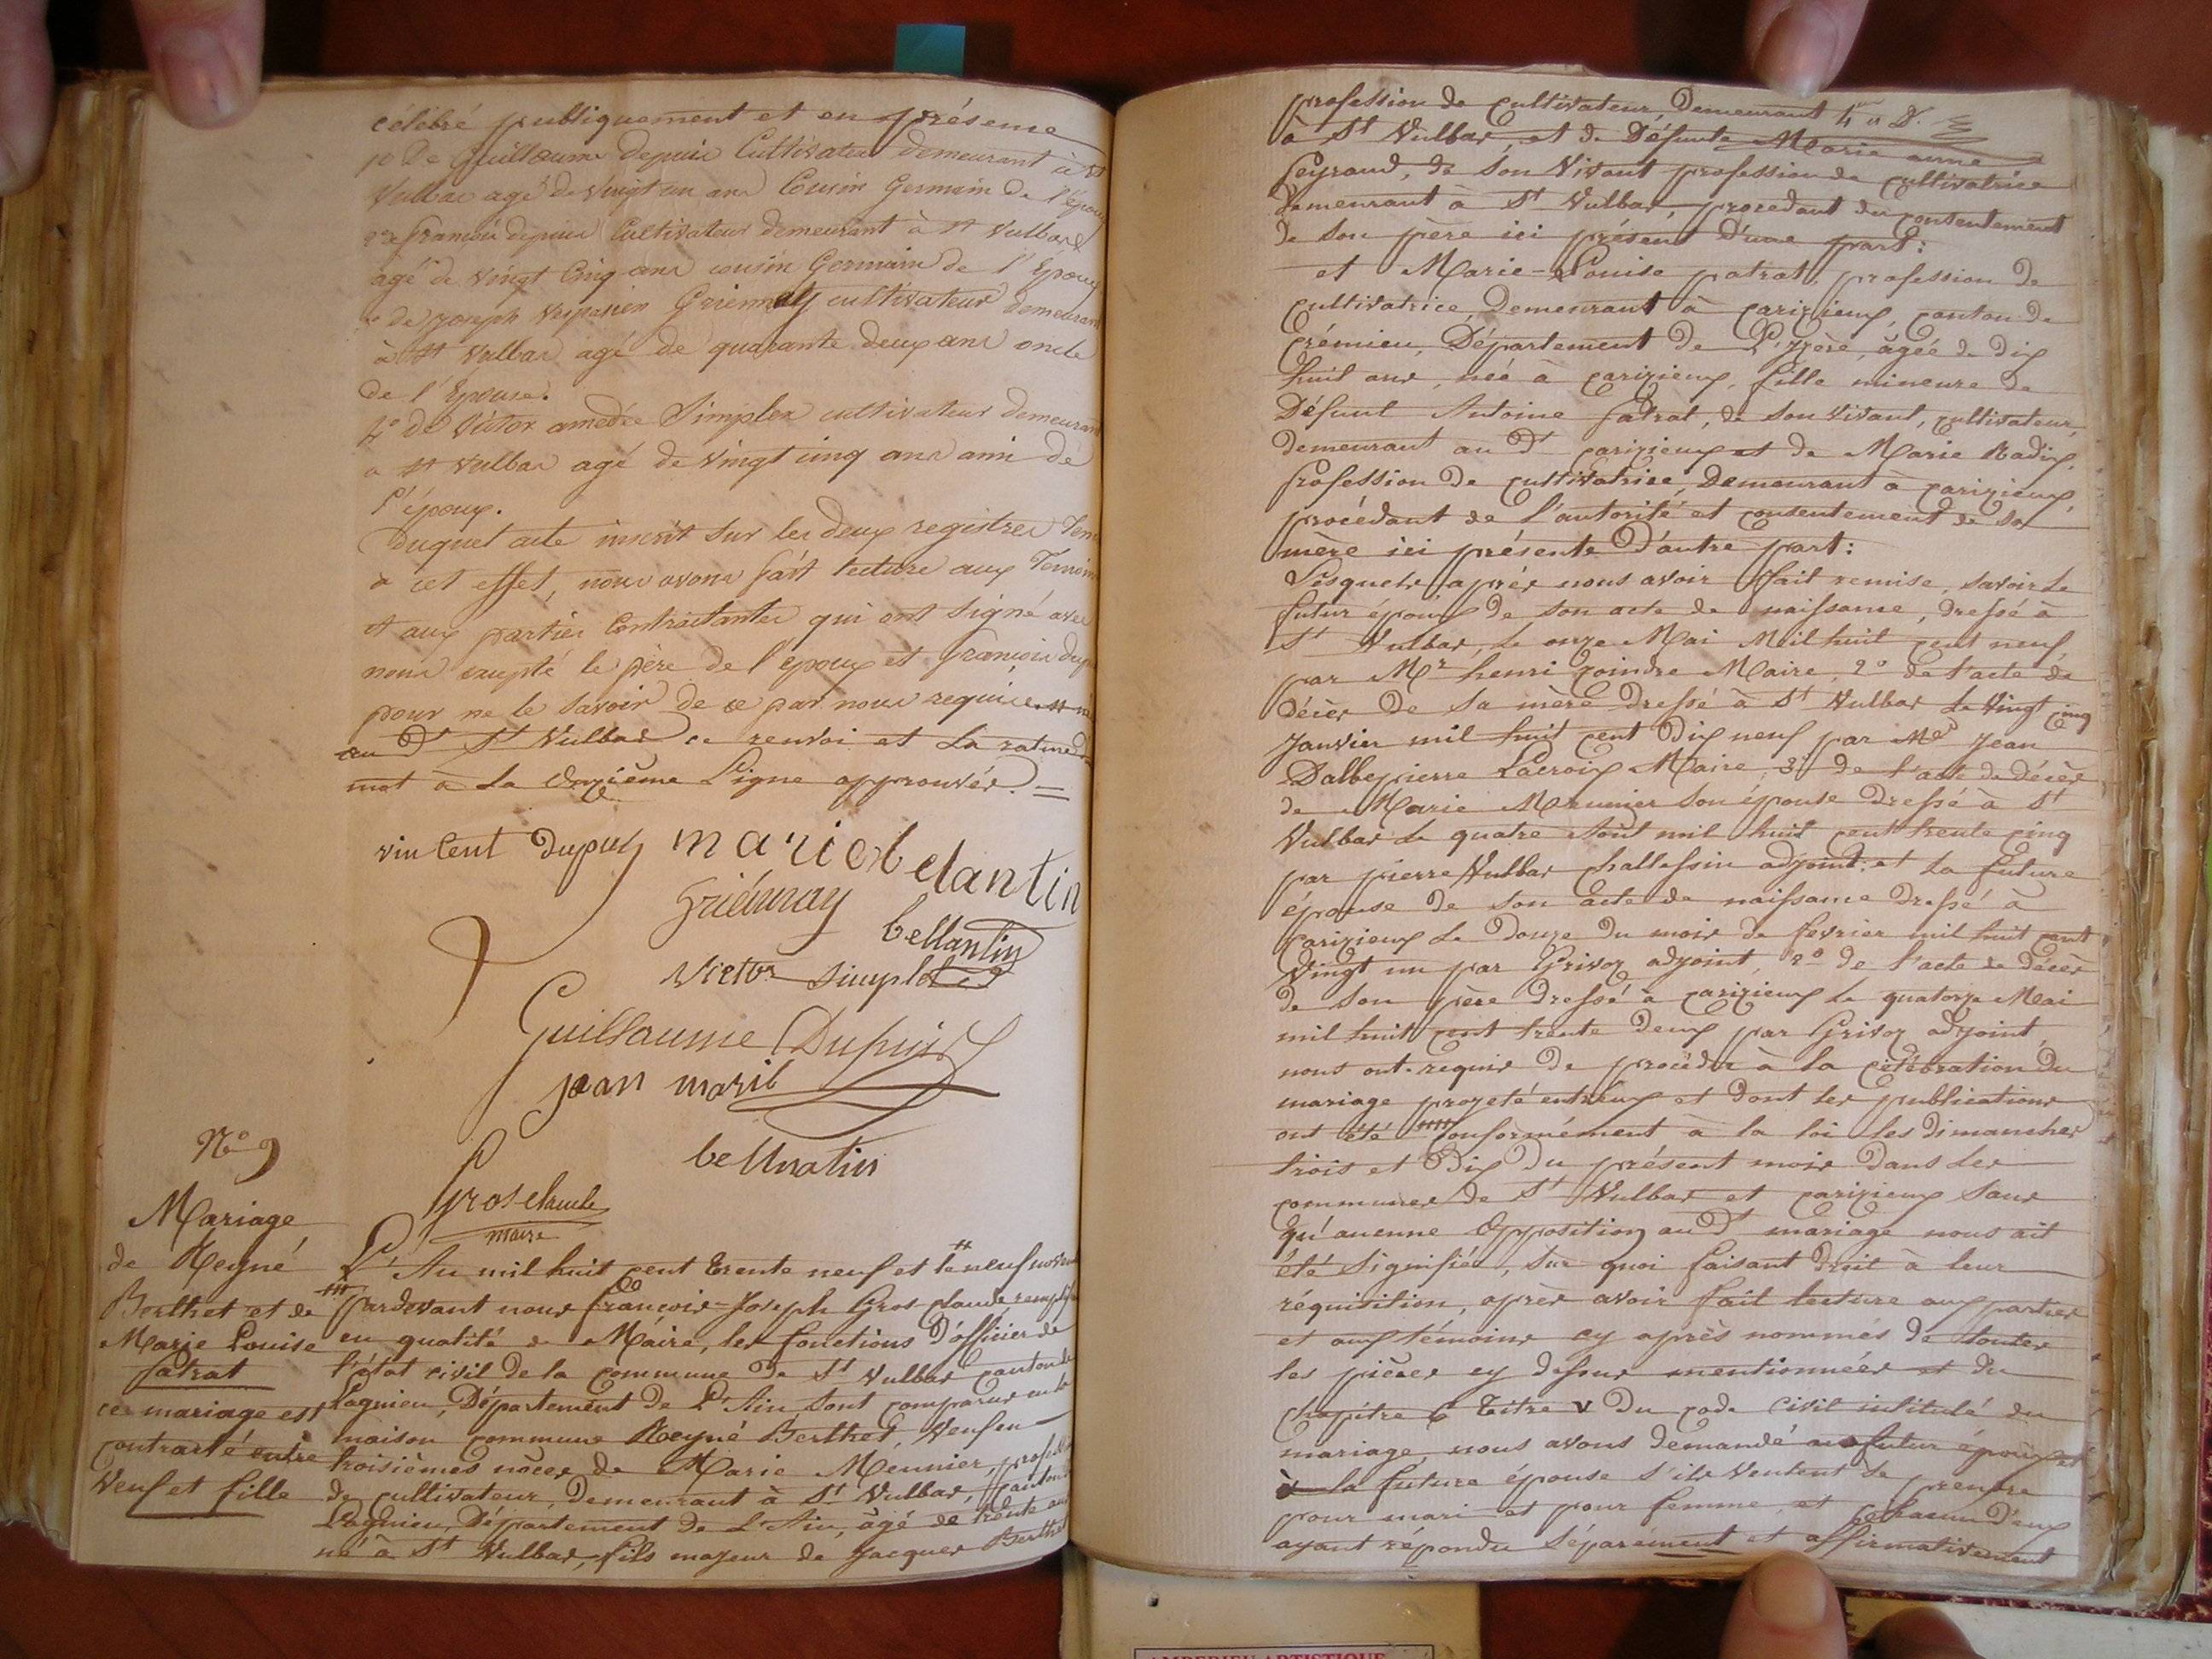 célébré publiquement et en présence
1o De Guillaume depuis Cultivateur demeurant à st
Vulbas agé de vingt un ans Cousin Germain de l'époux
2o de françois dupuis Cultivateur demeurant à st Vulbas
agé de vingt Cinq ans cousin Germain de l'Epoux
de joseph Vespasien Griennay cultivateur demeurant
à st Vulbas agé de quarante deux ans oncle
de l'Epouse.
4o de Victor amedée Simplex cultivateur demeurant
a st Vulbas agé de vingt cinq ans ami de
l'époux.
Duquel acte inscrit sur les deux registres
à cet effet, nous avons fait lecture aux Temoins
et aux parties Contractantes qui ont signé avec
nous excepté le père de l'époux et françois
pour ne le savoir de ce par nous requis
au Dt St Vulbas ce renvoi et la rature
mot à la onzième Ligne approuvés. =
vincent dupuis marie belantin
Griénnay
bellantin
Victor Simplex
Guillaume Dupuis
jean marie
bellnatin
Gros claude
maire
No 9
Mariage
de Reyné
Berthet et de
Marie Louise
Patrat
ce mariage est
contracté entre
veuf et fille
L'An mil huit cent trente neuf et le neuf
pardevant nous françois-Joseph Gros-claude
en qualité de Maire, les fonctions d'officier de
l'état civil de la commune de St Vulbas canton de
Lagnieu, Département de L'Ain sont comparus en la
maison commune Reyné Berthet, Veuf en
troisièmes nôces de Marie Meunier,
de cultivateur, demeurant à St Vulbas, canton de
Lagnieu, Département de L'Ain, âgé de trente ans
né à St Vulbas, fils majeur de Jacques Berthet
profession de cultivateur, Demeurant
à St Vulbas, et de Défunte Marie anne
Peyraud, de son Vivant profession de cultivatrice
demeurant à St Vulbas, procedant du contentement
de son père ici présent d'une part:
et Marie-Louise patrat, profession de
cultivatrice, Demeurant à parizieux, canton de
Crémieu, Département de L'Izère, âgée de dix
huit ans, née à parizieux, fille mineure de
Défunt Antoine Patrat, de son vivant, cultivateur,
demeurant au Dt parizieux et de Marie Nadix,
Profession de cultivatrice Demeurant à parizieux,
procédant de l'autorité et consentement de sa
mère ici présente D'autre part:
Lesquels, après nous avoir fait remise, savoir le
futur époux de son acte de naissance, dressé à
St Vulbas, le onze Mai Mil huit cent neuf,
par Mr henri poindre Maire, 2o de l'acte de
décès de sa mère dressé à St Vulbas le Vingt cinq
Janvier mil huit cent Dix neuf par Mr Jean
Dalbepierre Lacroix Maire, 3o de l'acte de décès
de Marie Meunier son épouse dressé à St
Vulbas le quatre Août mil huit cent trente cinq
par pierre Vulbas challessin adjoint: et La future
épouse de son acte de naissance dressé à
parizieux le Douze Du mois de fevrier mil huit cent
Vingt un par Grisoz adjoint, 2o de l'acte de décès
de son père dressé à parizieux le quatorze Mai
mil huit cent trente deux par Grisoz adjoint,
nous ont requis de procéder à la célébration du
mariage projeté entr'eux et dont les publications
ont été conformément à la loi les dimanches
trois et Dix Du présent mois Dans les
communes de St Vulbas et parizieux sans
qu'aucune Opposition au Dt mariage nous ait
été Signifiée, Sur quoi faisant Droit à leur
réquisition, après avoir fait lecture aux parties
et aux témoins cy après nommés de toutes
les pièces cy dessus mentionnées et du
chapitre 6 Titre V Du code Civil intitulé du
mariage, nous avons demandé au futur époux et
à la future épouse s'ils veulent se prendre
pour mari et pour femme, et chacun d'eux
ayant répondu séparément et affirmativement